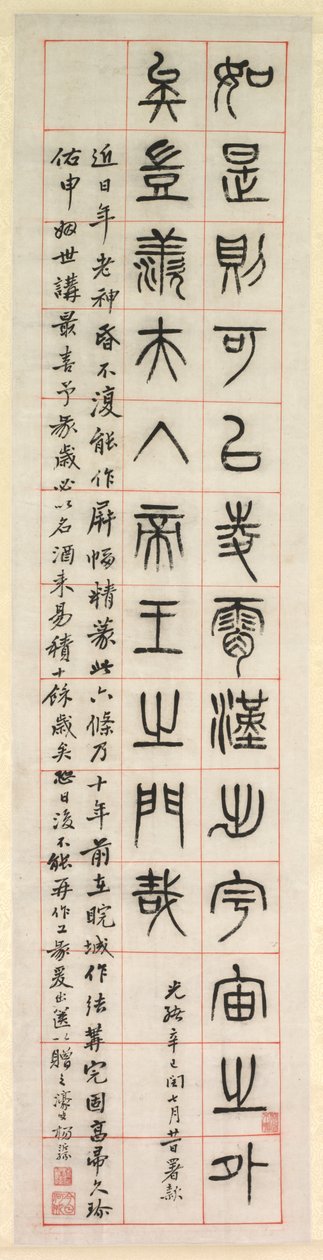 如是則可㠯夌霄漢出宇宙之外
矣豈羨夫入帝王之門哉
光緒辛巳閏七月廿日署款
近日年老神昏不復能作屏幅精篆此六條乃十年前在皖城作結構完固高帚久珍
佑申姻世講最喜予篆歲必以名酒來易積十餘歲矣恐日後不能再作工篆爰出篋以贈之濠叟楊沂孫